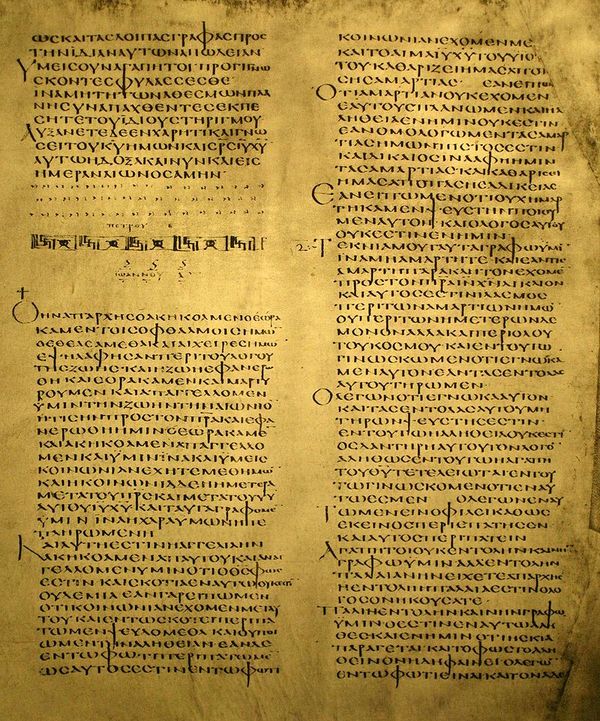 ΩϹΚΑΙΤΑϹΛΟΙΠΑϹΓΡΑΦΑϹΠΡΟϹ
ΤΗΝΙΔΙΑΝΑΥΤΩΝΑΠΩΛΕΙΑΝ
ΥΜΕΙϹΟΥΝΑΓΑΠΗΤΟΙΠΡΟΓΙΝΩ
ϹΚΟΝΤΕϹΦΥΛΑϹϹΕϹΘΕ
ΙΝΑΜΗΤΗΤΩΝΑΘΕϹΜΩΝΠΛΑ
ΝΗϹΥΝΑΠΑΧΘΕΝΤΕϹΕΚΠΕ
ϹΗΤΕΤΟΥΙΔΙΟΥϹΤΗΡΙΓΜΟΥ
ΑΥΞΑΝΕΤΕΔΕΕΝΧΑΡΙΤΙΚΑΙΓΝΩ
ϹΕΙΤΟΥΚΥΗΜΩΝΚΑΙϹΡϹΙΥΧΥ
ΑΥΤΩΗΔΟΞΑΚΑΙΝΥΝΚΑΙΕΙϹ
ΗΜΕΡΑΝΑΙΩΝΟϹΑΜΗΝ
ΠΕΤΡΟΥ Β
ΙΩΑΝΝΟΥ Α
ΟΗΝΑΠΑΡΧΗϹΟΑΚΗΚΟΑΜΕΝΟΕΩΡΑ
ΚΑΜΕΝΤΟΙϹΟΦΘΑΛΜΟΙϹΗΜΩ
ΟΕΘΕΑϹΑΜΕΘΑΚΑΙΑΙΧΕΙΡΕϹΗΜΩ
ΕΨΗΛΑΦΗϹΑΝΠΕΡΙΤΟΥΛΟΓΟΥ
ΤΗϹΖΩΗϹΚΑΙΗΖΩΗΕΦΑΝΕΡ
ΘΗΚΑΙΕΟΡΑΚΑΜΕΝΚΑΙΜΑΡΤΥ
ΡΟΥΜΕΝΚΑΙΑΠΑΓΓΕΛΛΟΜΕΝ
ΥΜΙΝΤΗΝΖΩΗΝΤΗΝΑΙΩΝΙΟ
ΗΤΙϹΗΝΠΡΟϹΤΟΝΠΡΑΚΑΙΕΦΑ
ΝΕΡΩΘΗΗΜΙΝΟΕΩΡΑΚΑΜΕ
ΚΑΙΑΚΗΚΟΑΜΕΝΑΠΑΓΓΕΛΛΟ
ΜΕΝΚΑΙΥΜΙΝΙΝΑΚΑΙΥΜΕΙϹ
ΚΟΙΝΩΝΙΑΝΕΧΗΤΕΜΕΘΗΜΩ
ΚΑΙΗΚΟΙΝΩΝΙΑΔΕΗΗΜΕΤΕΡΑ
ΜΕΤΑΤΟΥΠΡϹΚΑΙΜΕΤΑΤΟΥΥΥ
ΑΥΤΟΥΙΥΧΥΚΑΙΤΑΥΤΑΓΡΑΦΟΜΕ
ΥΜΙΝΙΝΑΗΧΑΡΑΥΜΩΝΗΠΕ
ΠΛΗΡΩΜΕΝΗ
ΚΑΙΑΥΤΗΕϹΤΙΝΗΑΓΓΕΛΙΑΗΝ
ΑΚΗΚΟΑΜΕΝΑΠΑΥΤΟΥΚΑΙΑΝΑΓ
ΓΕΛΛΟΜΕΝΥΜΙΝΟΤΙΟΘϹΦΩϹ
ΕϹΤΙΝΚΑΙϹΚΟΤΙΑΕΝΑΥΤΩΟΥΚΕϹΤΙ
ΟΥΔΕΜΙΑΕΑΝΓΑΡΕΙΠΩΜΕΝ
ΟΤΙΚΟΙΝΩΝΙΑΝΕΧΟΜΕΝΜΕΤΑΥ
ΤΟΥΚΑΙΕΝΤΩϹΚΟΤΕΙΠΕΡΙΠΑ
ΤΩΜΕΝΨΕΥΔΟΜΕΘΑΚΑΙΟΥΠΟΙ
ΟΥΜΕΝΤΗΝΑΛΗΘΕΙΑΝΕΑΝΔΕ
ΕΝΤΩΦΩΤΙΠΕΡΙΠΑΤΩΜΕ
ΩϹΑΥΤΟϹΕϹΤΙΝΕΝΤΩΦΩΤΙ
ΚΟΙΝΩΝΙΑΝΕΧΟΜΕΝΜΕ
ΚΑΙΤΟΑΙΜΑΙΥΧΥΤΟΥΥΙΟΥ
ΤΟΥΚΑΘΑΡΙΖΕΙΗΜΑϹΑΠΟΠΑ
ϹΗϹΑΜΑΡΤΙΑϹ ΕΑΝΕΙΠΩ
ΟΤΙΑΜΑΡΤΙΑΝΟΥΚΕΧΟΜΕΝ
ΕΑΥΤΟΥϹΠΛΑΝΩΜΕΝΚΑΙΗΑ
ΛΗΘΕΙΑΕΝΗΜΙΝΟΥΚΕϹΤΙΝ
ΕΑΝΟΜΟΛΟΓΩΜΕΝΤΑϹΑΜΑΡ
ΤΙΑϹΗΜΩΝΠΙϹΤΟϹΕϹΤΙΝ
ΚΑΙΔΙΚΑΙΟϹΙΝΑΑΦΗΗΜΙΝ
ΤΑϹΑΜΑΡΤΙΑϹΚΑΙΚΑΘΑΡΙϹΗ
ΗΜΑϹΑΠΟΠΑϹΗϹΑΔΙΚΕΙΑϹ
ΕΑΝΕΙΠΩΜΕΝΟΤΙΟΥΧΗΜΑΡ
ΤΗΚΑΜΕΝΨΕΥϹΤΗΝΠΟΙΟΥ
ΜΕΝΑΥΤΟΝΚΑΙΟΛΟΓΟϹΑΥΤΟΥ
ΟΥΚΕϹΤΙΝΕΝΗΜΙΝ
ΤΕΚΝΙΑΜΟΥΤΑΥΤΑΓΡΑΦΩΥΜΙ
ΙΝΑΜΗΑΜΑΡΤΗΤΕΚΑΙΕΑΝΤΙϹ
ΑΜΑΡΤΗΠΑΡΑΚΛΗΤΟΝΕΧΟΜΕ
ΠΡΟϹΤΟΝΠΡΑΙΝΧΝΔΙΚΑΙΟΝ
ΚΑΙΑΥΤΟϹΕϹΤΙΝΙΛΑϹΜΟϹ
ΠΕΡΙΤΩΝΑΜΑΡΤΙΩΝΗΜΩ
ΟΥΠΕΡΙΤΩΝΗΜΕΤΕΡΩΝΔΕ
ΜΟΝΟΝΑΛΛΑΚΑΙΠΕΡΙΟΛΟΥ
ΤΟΥΚΟϹΜΟΥΚΑΙΕΝΤΟΥΤΩ
ΓΙΝΩϹΚΟΜΕΝΟΤΙΕΓΝΩΚΑ
ΜΕΝΑΥΤΟΝΕΑΝΤΑϹΕΝΤΟΛΑϹ
ΑΥΤΟΥΤΗΡΩΜΕΝ
ΟΛΕΓΩΝΟΤΙΕΓΝΩΚΑΑΥΤΟΝ
ΚΑΙΤΑϹΕΝΤΟΛΑϹΑΥΤΟΥΜΗ
ΤΗΡΩΝΨΕΥϹΤΗϹΕϹΤΙΝ
ΕΝΤΟΥΤΩΗΑΛΗΘΕΙΑΟΥΚΕϹΤΙ
ΟϹΔΑΝΤΗΡΗΑΥΤΟΥΤΟΝΛΟΓΟ
ΑΛΗΘΩϹΕΝΤΟΥΤΩΗΑΓΑΠΗ
ΤΟΥΘΥΤΕΤΕΛΕΙΩΤΑΙΕΝΤΟΥ
ΤΩΓΙΝΩϹΚΟΜΕΝΟΤΙΕΝΑΥ
ΤΩΕϹΜΕΝ ΟΛΕΓΩΝΕΝΑΥ
ΤΩΜΕΝΕΙΝΟΦΙΛΕΙΚΑΘΩϹ
ΕΚΕΙΝΟϹΠΕΡΙΕΠΑΤΗϹΕΝ
ΚΑΙΑΥΤΟϹΠΕΡΙΠΑΤΕΙΝ
ΑΓΑΠΗΤΟΙΟΥΚΕΝΤΟΛΗΝΚΑΙΝΗ
ΓΡΑΦΩΥΜΙΝΑΛΛΕΝΤΟΛΗΝ
ΠΑΛΑΙΑΝΗΝΕΙΧΕΤΕΑΠΑΡΧΗϹ
ΗΕΝΤΟΛΗΗΠΑΛΑΙΑΕϹΤΙΝΟΛΟ
ΓΟϹΟΝΗΚΟΥϹΑΤΕ
ΠΑΛΙΝΕΝΤΟΛΗΝΚΑΙΝΗΝΓΡΑΦΩ
ΥΜΙΝΟΕϹΤΙΝΕΝΑΥΤΩΑΛΗ
ΘΕϹΚΑΙΕΝΗΜΙΝΟΤΙΗϹΚΙΑ
ΠΑΡΑΓΕΤΑΙΚΑΙΤΟΦΩϹΤΟΑΛΗ
ΘΕΙΝΟΝΗΔΗΦΑΙΝΕΙΟΛΕΓΩ
ΕΝΤΩΦΩΤΙΕΙΝΑΙΚΑΙΤΟΝΑΔΕΛ